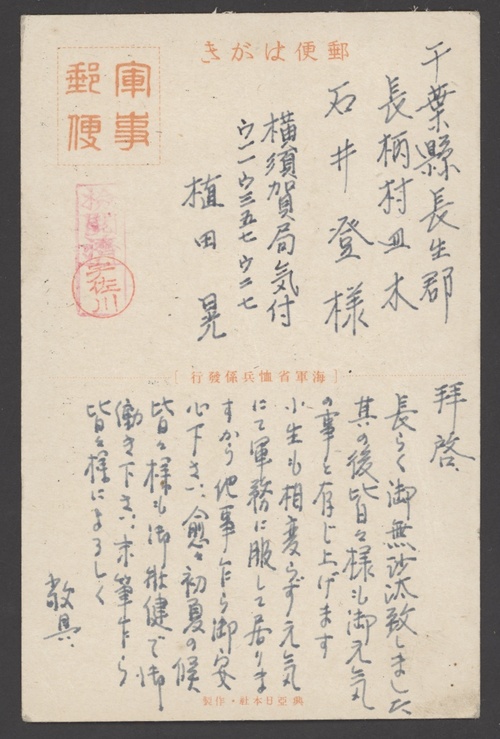 郵便はがき
軍事
郵便
検閲済
佐川
千葉縣長生郡
長柄村皿木
石井登様
横須賀局気付
ウ二一ウ三五七ウ二七
植田晃
［海軍省恤兵係發行］
拝啓
長らく御無沙汰致しました
其の後皆々様も御元気
の事と存じ上げます
小生も相変らず元気
にて軍務に服して居りま
すから他事乍ら御安
心下さい、愈々初夏の候
皆々様も御壮健で御
働き下さい、末筆乍ら
皆々様によろしく
敬具
興亞日本社・作製